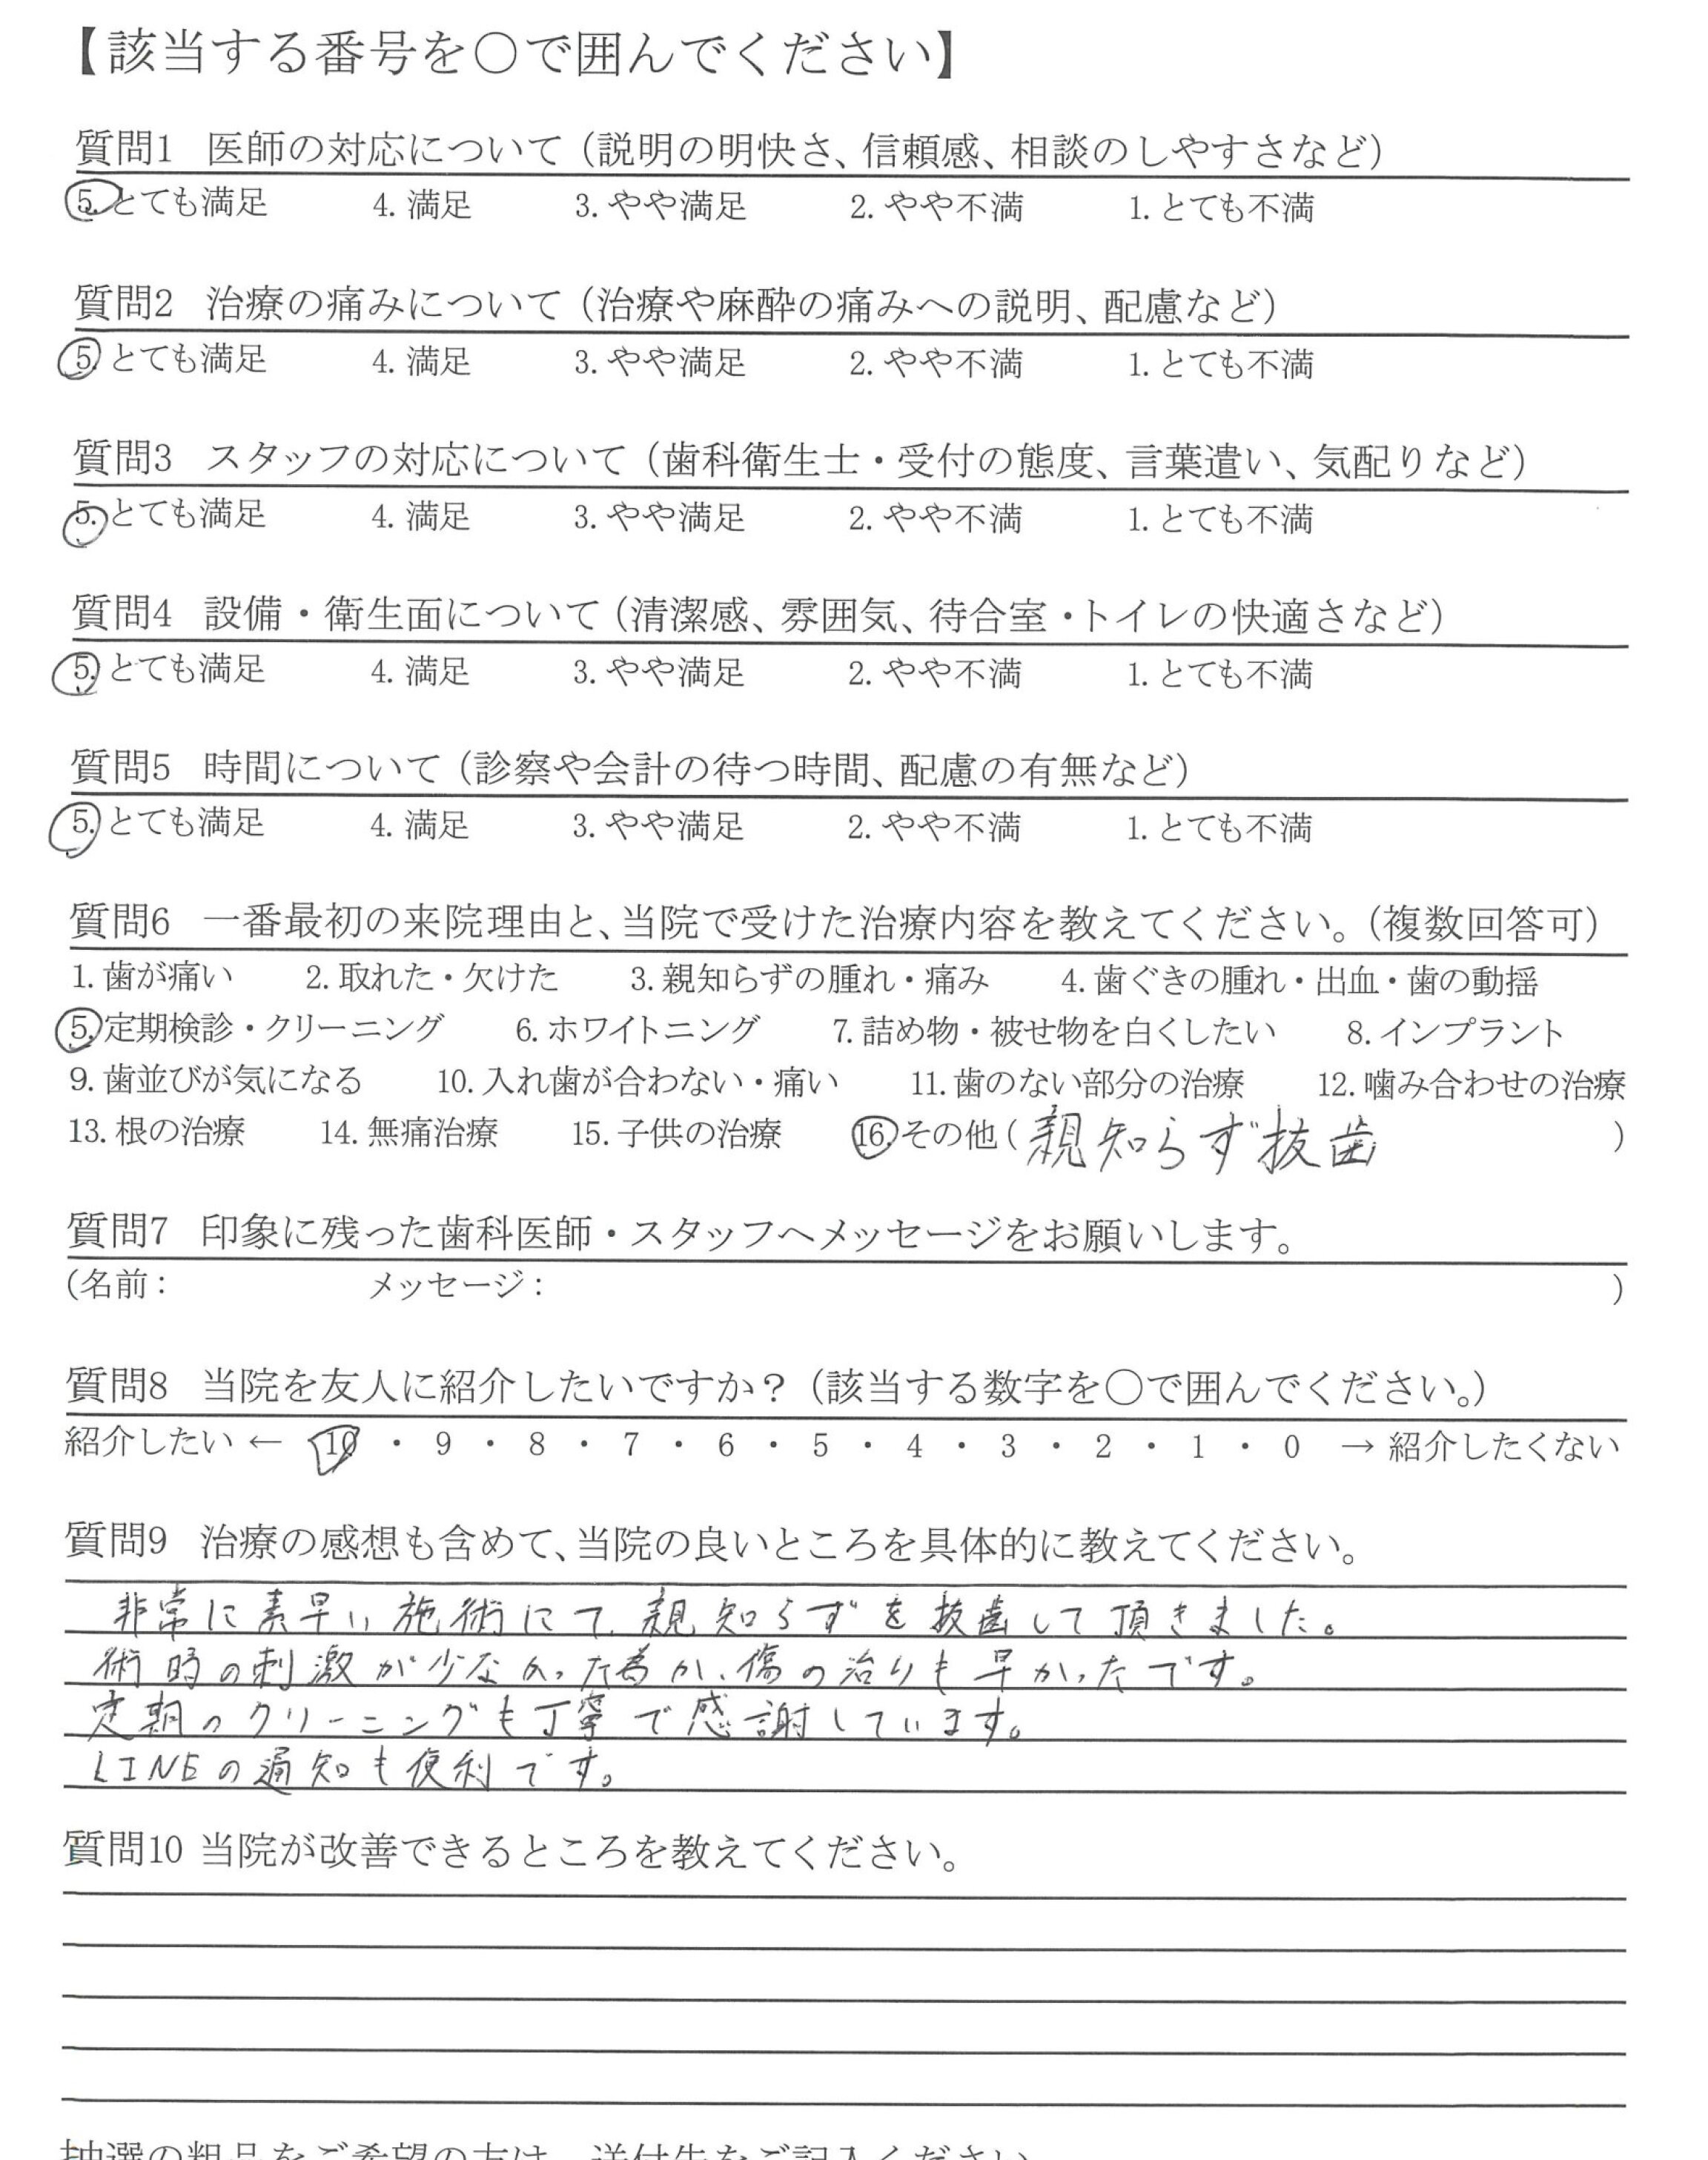 【該当する番号を○で囲んでください】
質問1 医師の対応について（説明の明快さ、信頼感、相談のしやすさなど）
5. とても満足 4. 満足 3. やや満足 2. やや不満 1. とても不満
質問2 治療の痛みについて（治療や麻酔の痛みへの説明、配慮など）
5. とても満足 4. 満足 3. やや満足 2. やや不満 1. とても不満
質問3 スタッフの対応について（歯科衛生士・受付の態度、言葉遣い、気配りなど）
5. とても満足 4. 満足 3. やや満足 2. やや不満 1. とても不満
質問4 設備・衛生面について（清潔感、雰囲気、待合室・トイレの快適さなど）
5. とても満足 4. 満足 3. やや満足 2. やや不満 1. とても不満
質問5 時間について（診察や会計の待つ時間、配慮の有無など）
5. とても満足 4. 満足 3. やや満足 2. やや不満 1. とても不満
質問6 一番最初の来院理由と、当院で受けた治療内容を教えてください。（複数回答可）
1. 歯が痛い 2. 取れた・欠けた 3. 親知らずの腫れ・痛み 4. 歯ぐきの腫れ・出血・歯の動揺
5. 定期検診・クリーニング 6. ホワイトニング 7. 詰め物・被せ物を白くしたい 8. インプラント
9. 歯並びが気になる 10. 入れ歯が合わない・痛い 11. 歯のない部分の治療 12. 噛み合わせの治療
13. 根の治療 14. 無痛治療 15. 子供の治療 16. その他（親知らず抜歯）
質問7 印象に残った歯科医師・スタッフへメッセージをお願いします。
（名前： メッセージ： ）
質問8 当院を友人に紹介したいですか？（該当する数字を○で囲んでください。）
紹介したい ← 10 ・ 9 ・ 8 ・ 7 ・ 6 ・ 5 ・ 4 ・ 3 ・ 2 ・ 1 ・ 0 → 紹介したくない
質問9 治療の感想も含めて、当院の良いところを具体的に教えてください。
非常に素早い施術にて、親知らずを抜歯して頂きました。
術時の刺激が少なかった為か、傷の治りも早かったです。
定期のクリーニングも丁寧で感謝しています。
LINEの通知も便利です。
質問10 当院が改善できるところを教えてください。
抽選の粗品をご希望の方は、送付先をご記入ください